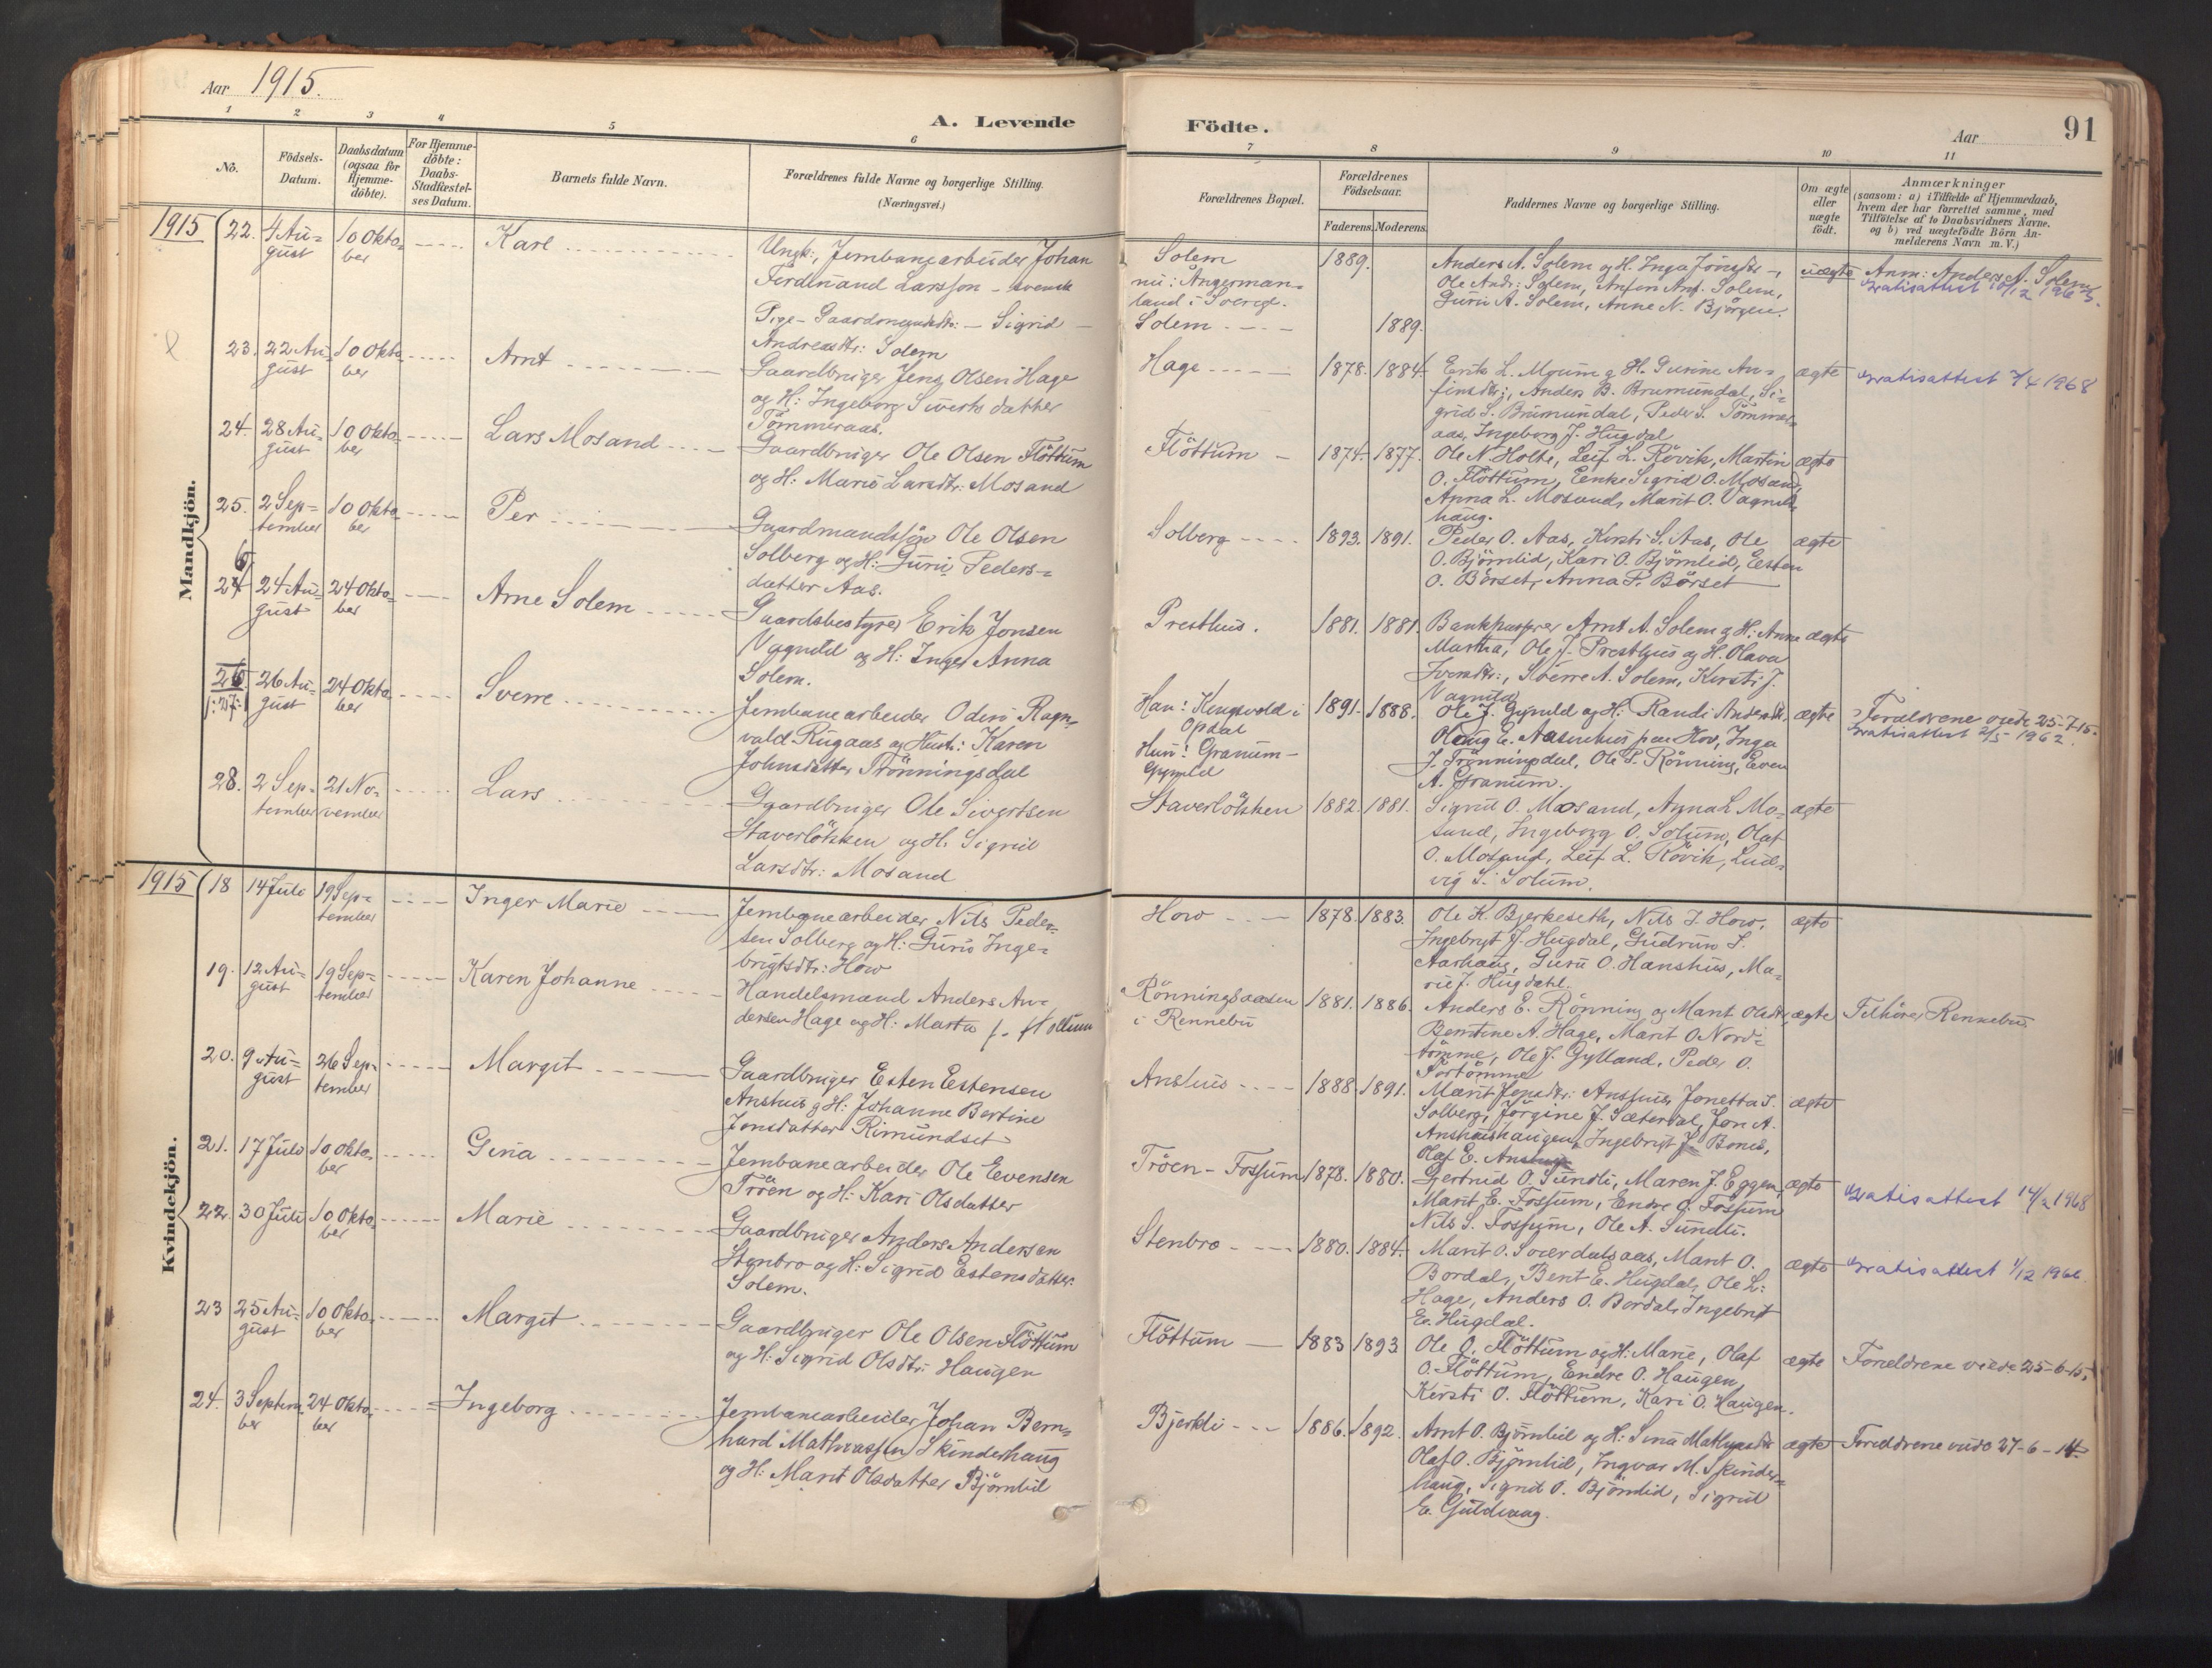 Aar 1915.
A. Levende Födte.
Aar
91
1 2 3 4 5 6 7 8 9 10 11
No.
Födsels-Datum.
Daabsdatum (ogsaa for Hjemme-döbte).
For Hjemme-döbte: Daabs-Stadfæstel-ses Datum.
Barnets fulde Navn.
Forældrenes fulde Navne og borgerlige Stilling. (Næringsvei.)
Forældrenes Bopæl.
Forældrenes Födselsaar.
Faderens. Moderens.
Faddernes Navne og borgerlige Stilling.
Om ægte eller uægte födt.
Anmærkninger
(saasom: a) i Tilfælde af Hjemmedaab, hvem der har forrettet samme, med Tilföielse af to Daabsvidners Navne. og b) ved uægtefödte Börn An-melderens Navn m. V.)
Mandkjön.
1915
22. 4 Au=gust 10 Okto=ber Karl
Ungk., Jernbanearbeider Johan
Ferdinand Larsson - svensk
Pige - Gaardmandsdtr: - Sigrid -
Andreasdtr: Solem
Solem
nu: Angerman=
land i Sverige.
Solem
1889.
1889.
Anders A. Solem og H. Inga Jonsdtr -,
Ole Andr: Solem, Anfin Anf. Solem,
Guru A. Solem, Anne N. Björgen.
uægte
Anm: Anders A. Solem
Gratisattest 10/12 1963.
23. 22 Au=gust 10 Okto=ber Arnt
Gaardbruger Jens Olsen Hage
og H: Ingeborg Siverts datter
Tömmeraas.
Hage 1878. 1884.
Erik L. Moum og H. Gurine An=
finsdtr:, Anders B. Brumundal, Si=
grid S. Brumundal, Peder S. Tömmer
aas, Ingeborg J. Hugdal
ægte
Gratisattest 7/4 1968
24. 28 Au=gust 10 Okto=ber Lars Mosand
Gaardbruger Ole Olsen Flöttum
og H: Marie Larsdtr: Mosand
Flöttum 1874. 1877.
Ole N. Holte, Leif L. Rövik, Martin
O. Flöttum, Enke Sigrid O. Mosand,
Anna L. Mosand, Marit O. Vagnild
haug.
ægte
25. 2 Sep=tember 10 Okto=ber Per
Gaardmandssön Ole Olsen
Solberg og H: Guru Peders=
datter Aas.
Solberg 1893. 1891.
Peder O. Aas, Kirsti S. Aas, Ole
O. Björnlid, Kari O. Björnlid, Esten
O. Börset, Anna P. Börset
ægte
26 24 Au=gust 24 Okto=ber Arne Solem
Gaardsbestyrer Erik Jonsen
Vagnild og H: Inger Anna
Solem.
Presthus. 1881. 1881.
Bankkasserer Arnt A. Solem og H: Anne
Martha, Ole J. Presthus og H. Olava
Iversdtr:, Sverre A. Solem, Kirsti J.
Vagnild
ægte
26. /:27:/ 26 Au=gust 24 Okto=ber Sverre
Jernbanearbeider Odin Ragn=
vald Rugaas og Hustr: Karen
Johnsdatter Trönningsdal
Han: Kongsvold i
Opdal
Hun: Granum -
1891. 1888.
Ole J. Gynnild og H: Randi Andersdtr,
J. Trönningsdal, Ole P. Rönning, Even
A. Granum.
ægte
Forældrene viede 25-7-15.
Gratisattest 2/5 1962.
28. 2 Sep=tember 21 No=vember Lars
Gaardbruger Ole Sivertsen
Staverlökken og H. Sigrid
Larsdtr: Mosand
Staverlökken 1882. 1881.
Sigrid O. Mosand, Anna L. Mo=
sand, Ingeborg O. Solum, Olaf
O. Mosand, Leif L. Rövik, Lud=
vig S. Solum.
ægte
Kvindekjön.
1915
18 14 Juli 19 Sep=tember Inger Marie
Jernbanearbeider Nils Peder=
sen Solberg og H: Guru Inge=
brigtsdtr: How
How 1878. 1883.
Ole K. Bjerkeseth, Nils I. How,
Ingebrigt J. Hugdal, Gudrun S.
Aarhaug, Guru O. Hanshus, Ma=
rie J. Hugdahl.
ægte
19. 12 Au=gust 19 Sep=tember Karen Johanne
Handelsmand Anders An=
dersen Hage og H: Marta f. Flottum
Rönningsaasen
i Rennebu
1881. 1886.
Anders E. Rönning og Marit Olsdtr,
Berntine A. Hage, Marit O. Nord=
tömme, Ole J. Gylland, Peder O.
ægte
Tilhörer Rennebu.
20. 9 Au=gust 26 Sep=tember Margit
Gaardbruger Esten Estensen
Anshus og H: Johanne Bertine
Jonsdatter Rimundset
Anshus 1888. 1891.
Marit Jensdtr: Anshus, Jonetta S.
Solberg, Jörgine J. Sæterdal, Jon A.
Anshaushaugen, Ingebrigt J. Bones,
Olaf E. Anshus
ægte
21. 17 Juli 10 Okto=ber Gina
Jernbanearbeider Ole Evensen
Tröen og H: Kari Olsdatter
Tröen - Fossum 1878. 1880.
Gertrud O. Sundli, Maren J. Eggen,
Marit E. Fossum, Endre O. Fossum
Nils S. Fossum, Ole A. Sundli.
ægte
Gratisattest 14/2 1968
22. 30 Juli 10 Okto=ber Marie
Gaardbruger Anders Andersen
Stenbro og H: Sigrid Estensdatter
Solem.
Stenbro 1880. 1884.
Marit O. Sverdalsaas, Marit O.
Bordal, Bent E. Hugdal, Ole L.
Hage, Anders O. Bordal, Ingebrigt
E. Hugdal.
ægte
Gratisattest 1/12 1966.
23 25 Au=gust 10 Okto=ber Margit
Gaardbruger Ole Olsen Flöttum
og H: Sigrid Olsdtr: Haugen
Flöttum 1883 1893
Ole O. Flöttum og H: Marie, Olaf
O. Flöttum, Endre O. Haugen,
Kirsti O. Flöttum, Kari O. Haugen.
ægte
Foreldrene viede 25-6-15.
24. 3 Septem=ber 24 Okto=ber Ingeborg
Jernbanearbeider Johan Bern=
hard Mathiassen Skinderhaug
og H: Marit Olsdatter Björnlid
Bjerkli 1886. 1892.
Arnt O. Björnlid og H: Sina Mathiasdtr
Olaf O. Björnlid, Ingvar M. Skinder=
haug, Sigrid O. Björnlid, Sigrid
E. Guldvaag.
ægte
Foreldrene viede 27-6-14.